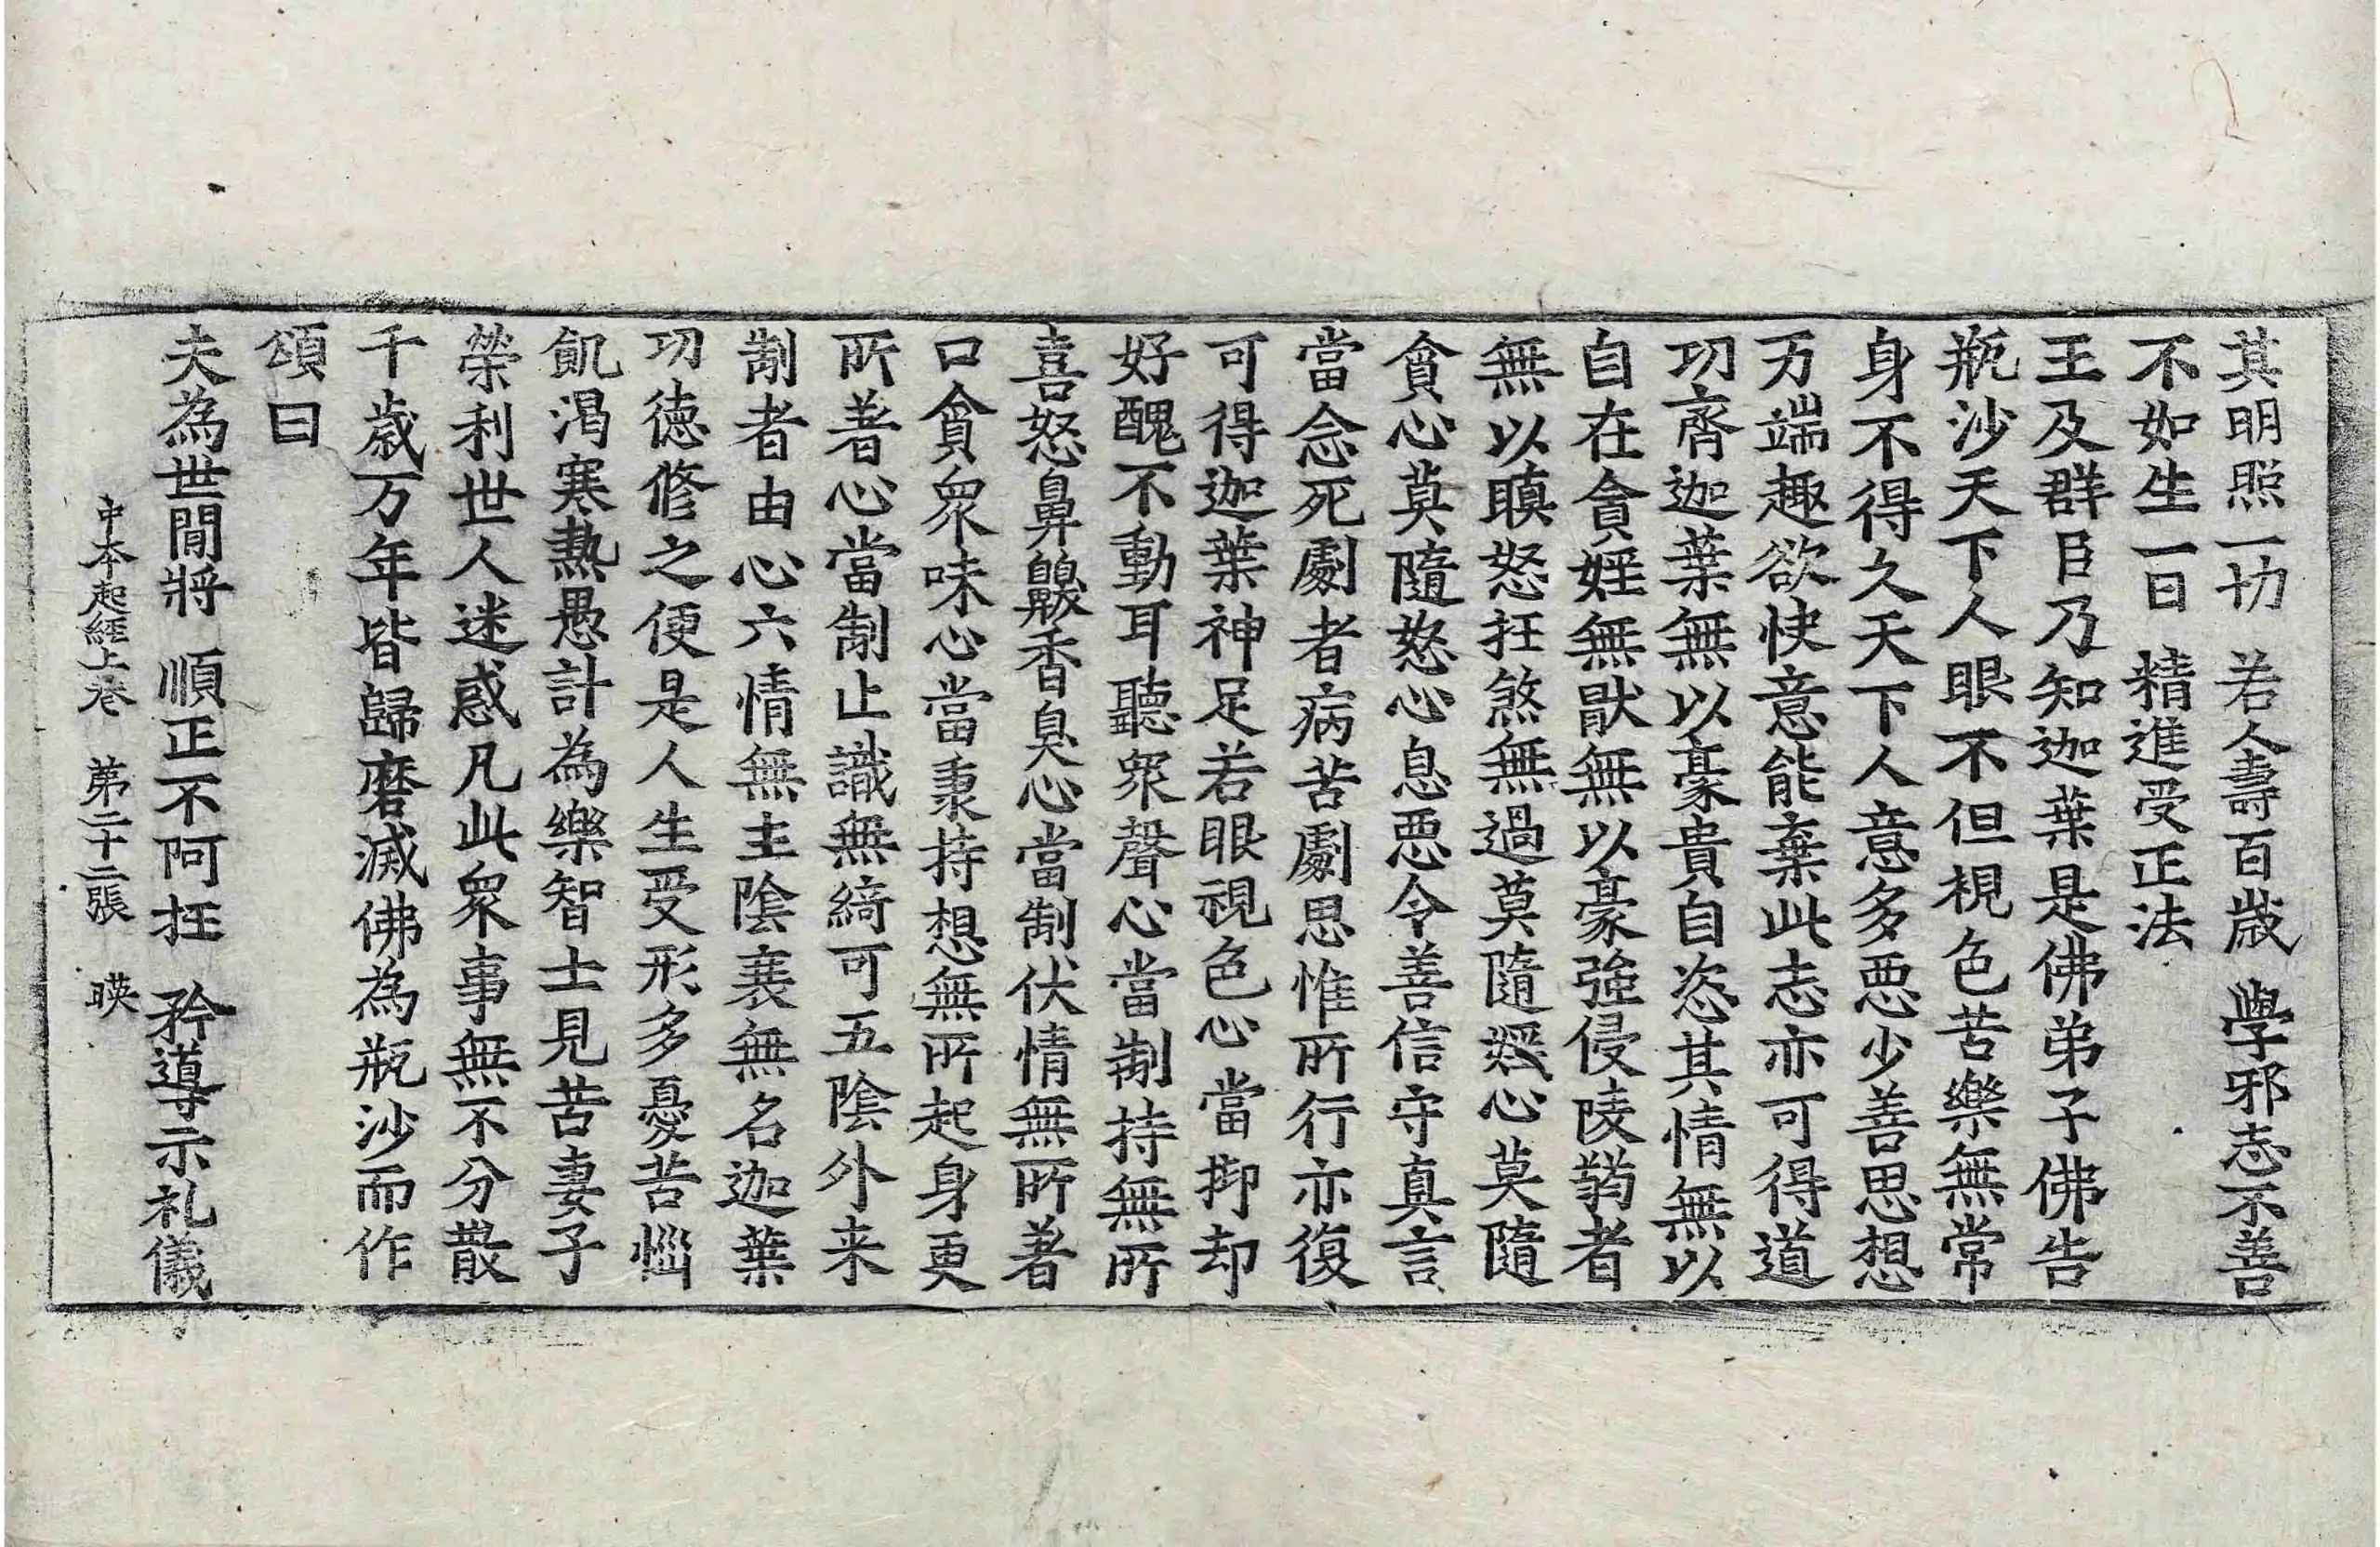 其明照一切　若人壽百歲　學邪志不善
不如生一日　精進受正法
王及群臣乃知迦葉是佛弟子佛告
瓶沙天下人眼不但視色苦樂無常
身不得久天下人意多惡少善思想
万端趣欲快意能棄此志亦可得道
功齊迦葉無以豪貴自恣其情無以
自在貪婬無猒無以豪強侵陵弱者
無以瞋怒抂煞無過莫隨婬心莫隨
貪心莫隨怒心息惡令善信守真言
當念死劇者病苦劇思惟所行亦復
可得迦葉神足若眼視色心當抑却
好醜不動耳聽衆聲心當制持無所
喜怒鼻齅香臭心當制伏情無所著
口貪衆味心當秉持想無所起身更
所著心當制止識無綺可五陰外来
制者由心六情無主陰衰無名迦葉
功德修之便是人生受形多憂苦惱
飢渴寒熱愚計為樂智士見苦妻子
榮利世人迷惑凡此衆事無不分散
千歲万年皆歸磨滅佛為瓶沙而作
頌曰
夫為世間將　順正不阿抂　矜導示礼儀
中本起經上卷　第二十二張　暎